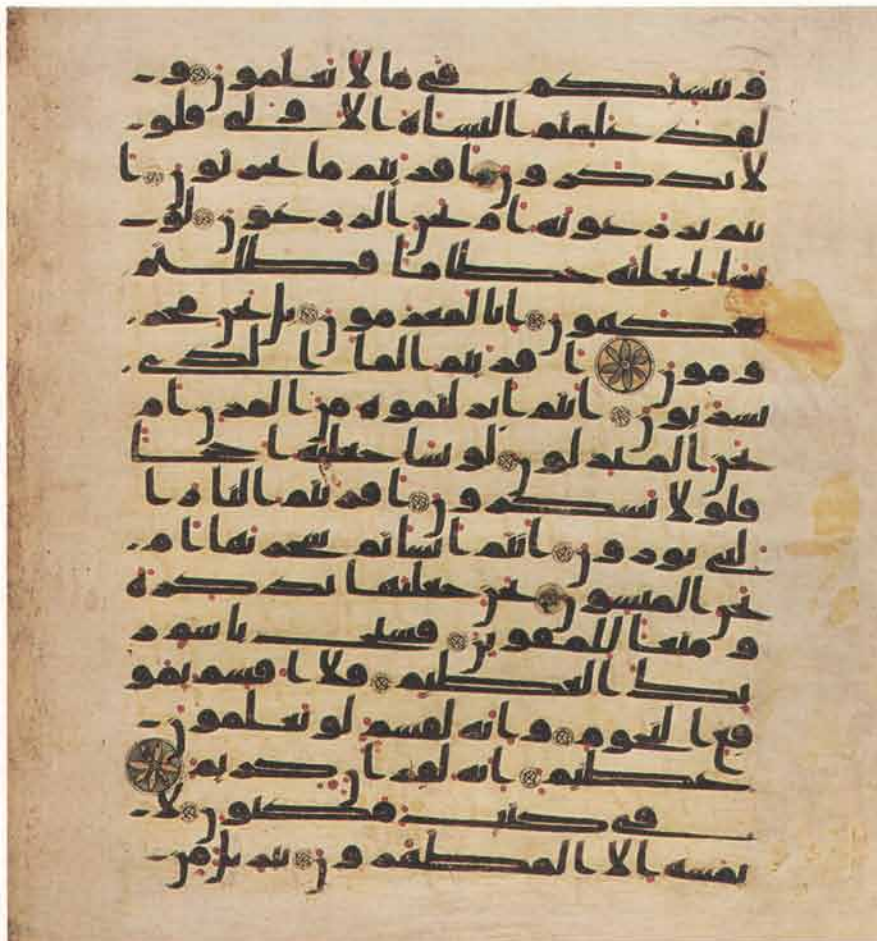 و ننشئكم في ما لا تعلمون و
لقد علمتم النشاة الاولى فلو
لا تذكرون افريتم ما تحرثون ا
نتم تزرعونه ام نحن الزرعون لو
نشا لجعلنه حطاما فظلتم
تفكهون انا لمغرمون بل نحن محر
ومون افريتم الما الذي
تشربون انتم انزلتموه من المزن ام
نحن المنزلون لو نشا جعلنه اجاجا
فلولا تشكرون افريتم النار ا
لتي تورون انتم انشاتم شجرتها ام
نحن المنشون نحن جعلنها تذكرة
و متعا للمقوين فسبح باسم ر
بك العظيم فلا اقسم بمو
قع النجوم و انه لقسم لو تعلمون
عظيم انه لقران كريم
في كتب مكنون لا
يمسه الا المطهرون تنزيل من